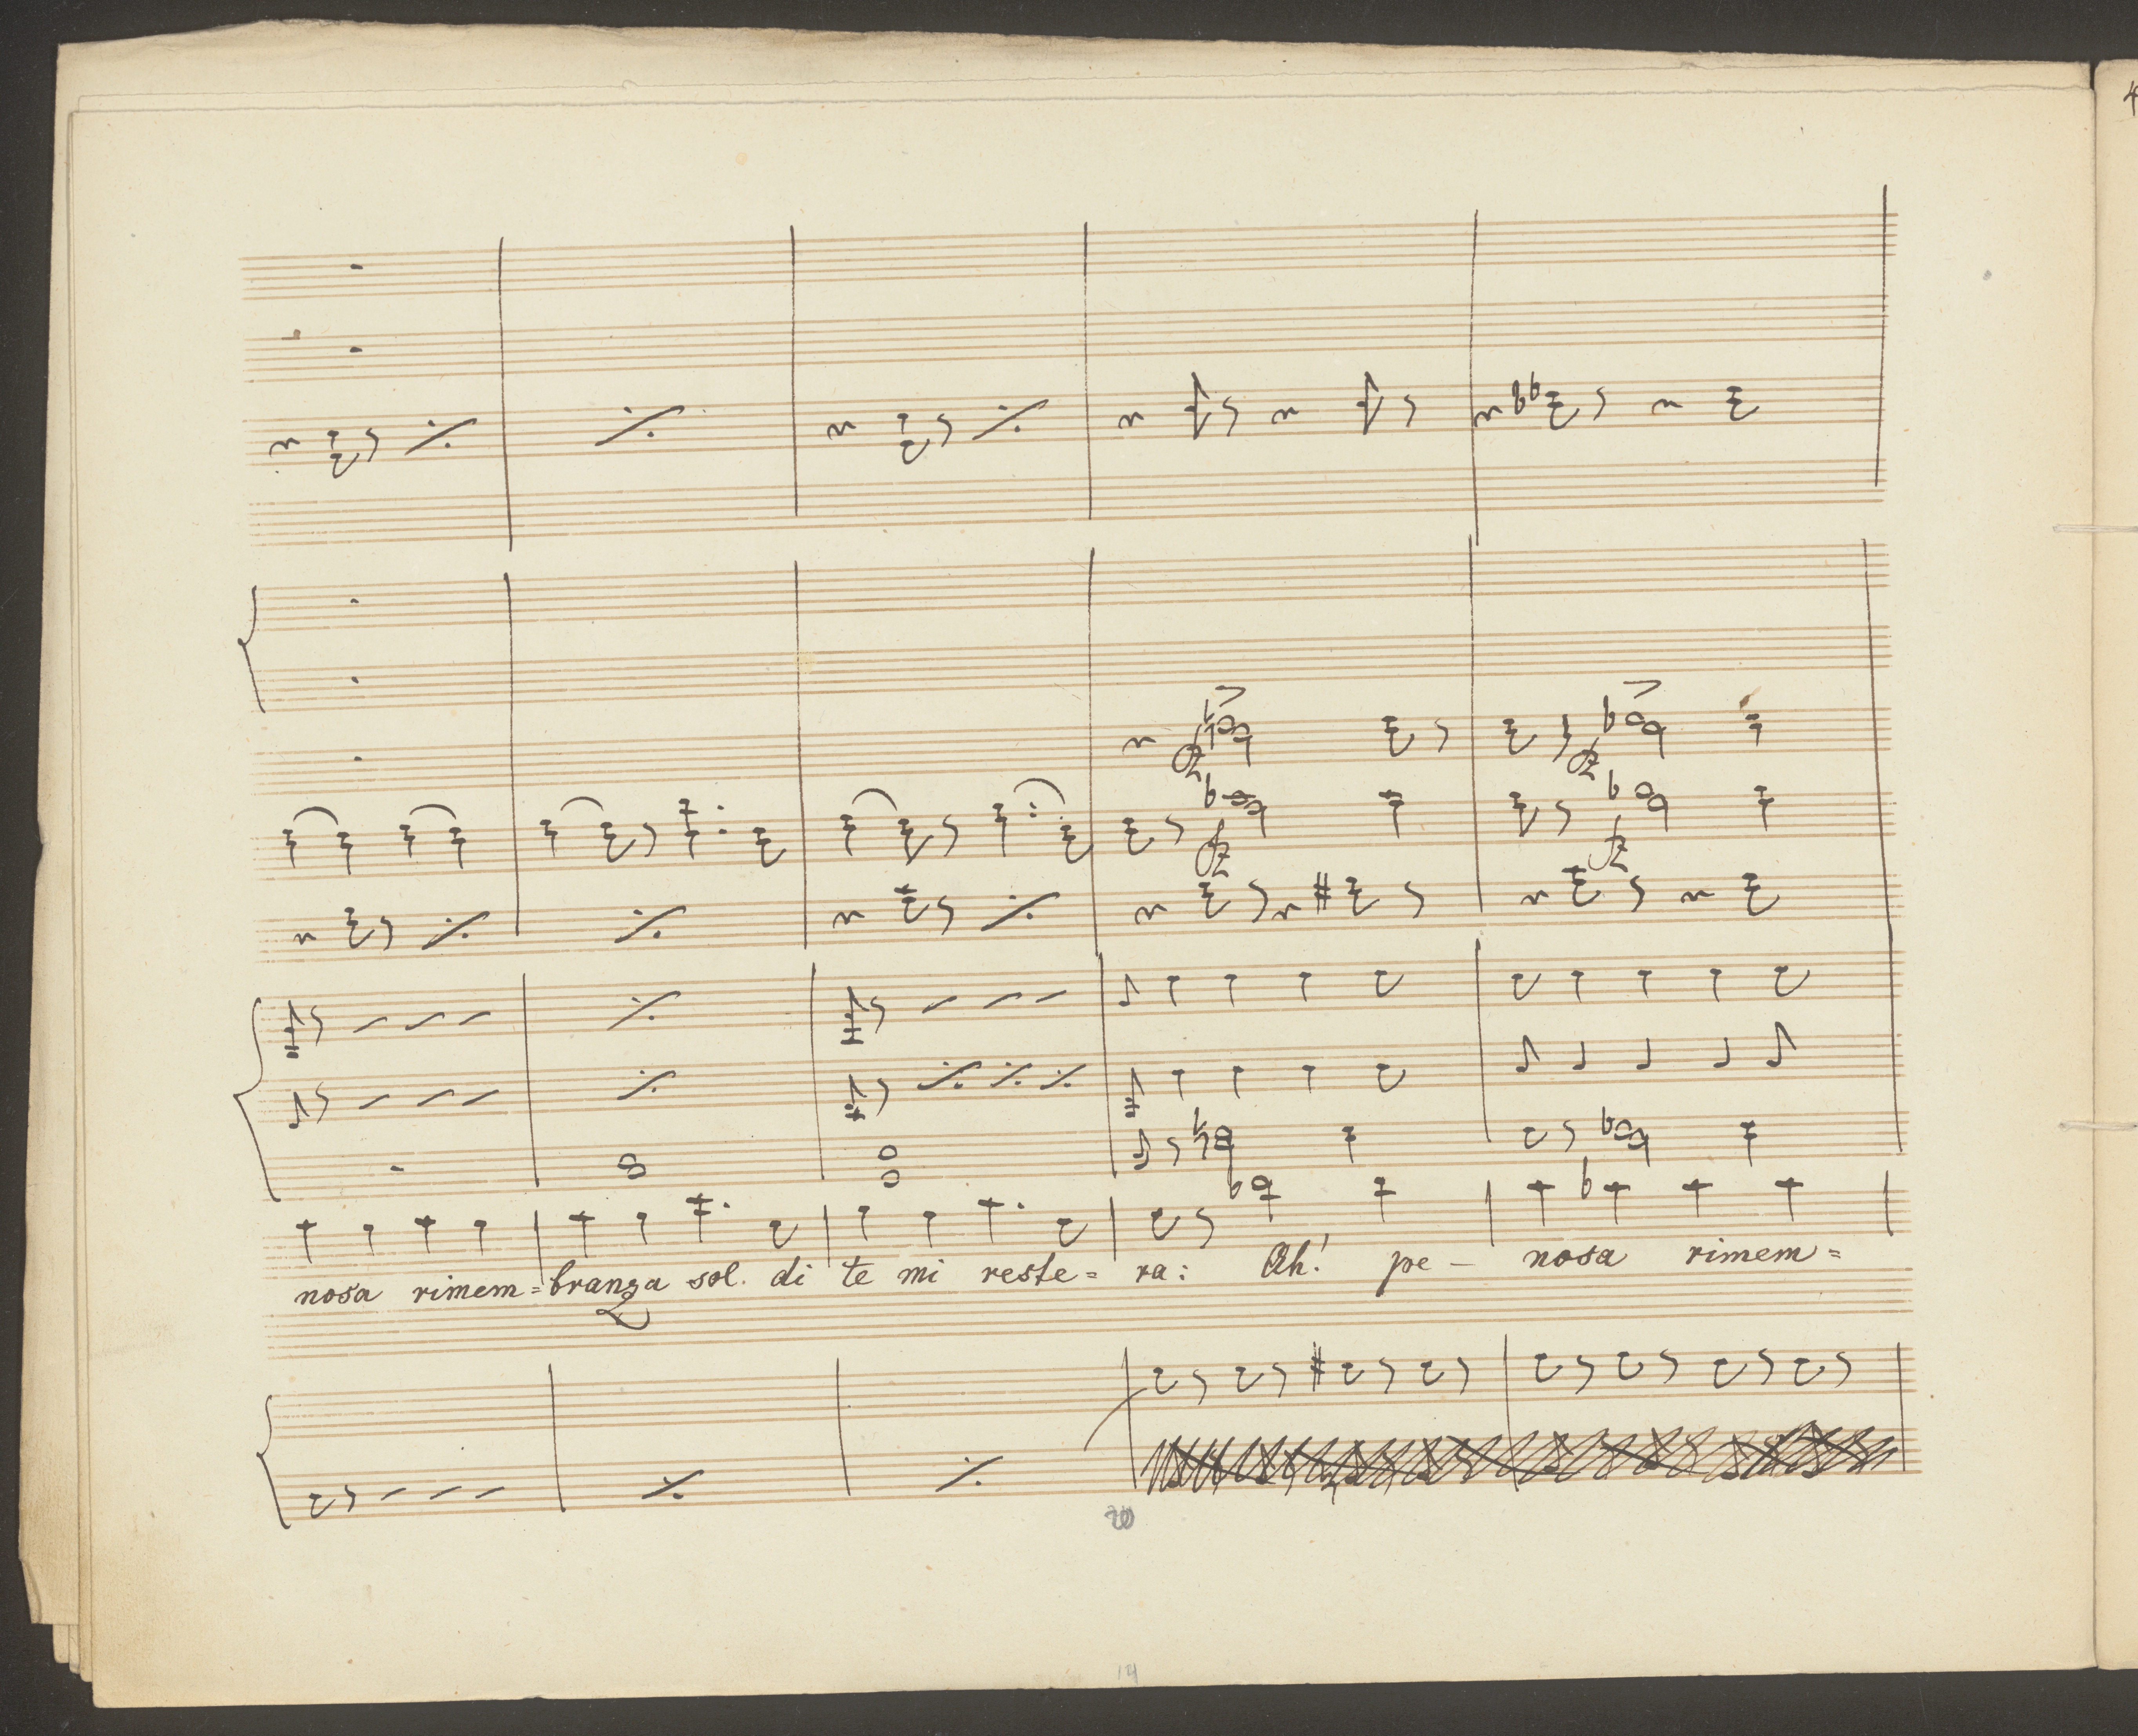 fz
fz
fz
fz
nosa rimem= branza sol. di te mi reste= ra: Ah! pe — nosa rimem=
20
14
4